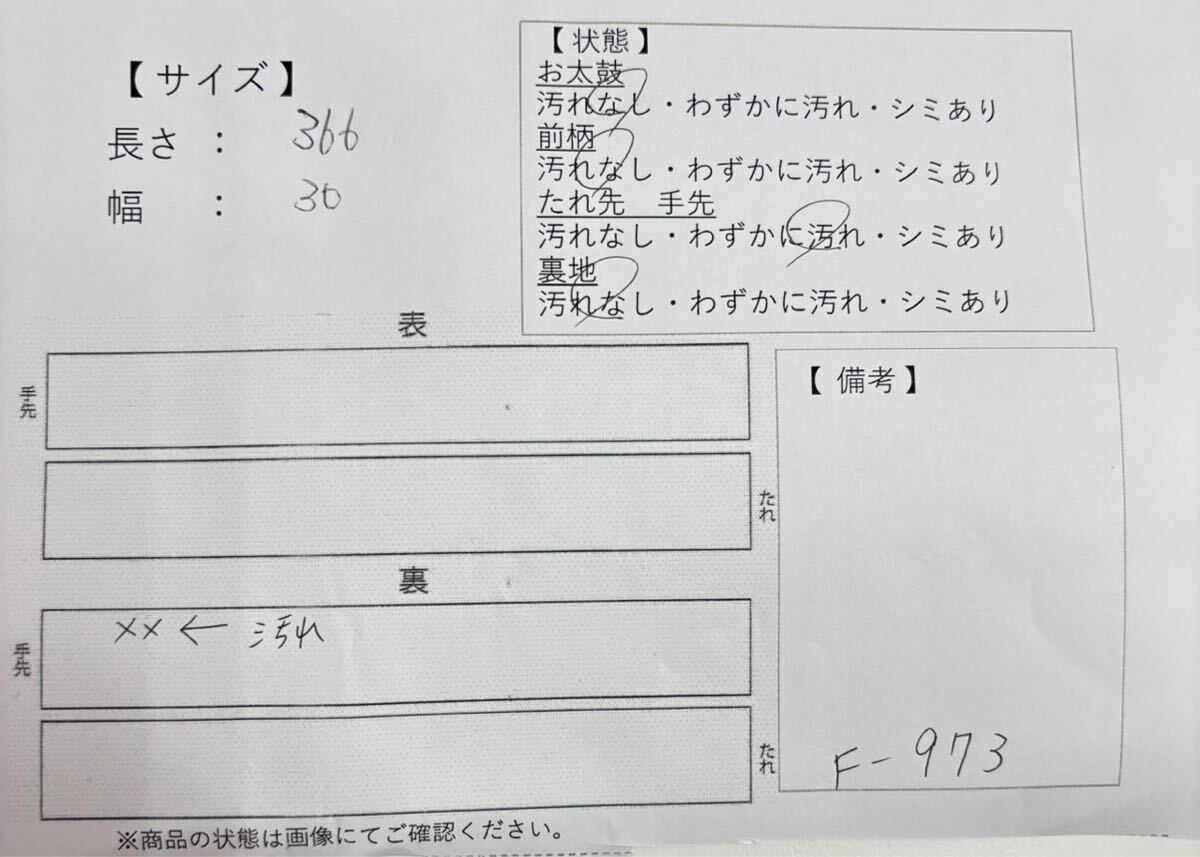 【 サイズ 】
長さ : 366
幅 : 30
【 状態 】
お太鼓
汚れなし・わずかに汚れ・シミあり
前柄
汚れなし・わずかに汚れ・シミあり
たれ先 手先
汚れなし・わずかに汚れ・シミあり
裏地
汚れなし・わずかに汚れ・シミあり
表
手先
たれ
裏
手先
××← 汚れ
たれ
【 備考 】
F-973
※商品の状態は画像にてご確認ください。